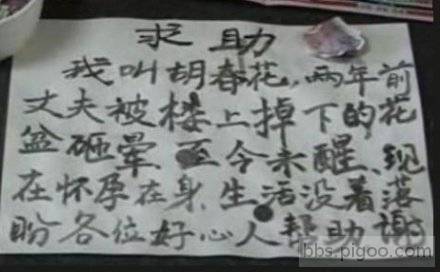 求助
我叫胡春花,两年前
丈夫被楼上掉下的花
盆砸晕 至今未醒、现
在怀孕在身、生活没着落
盼各位好心人帮助 谢
bbs.pigoo.com